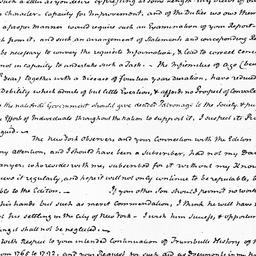 such a letter as you desire expressing at some length my views of your
character, capacity for improvement, and of the duties we owe them
a proper manner would require such an Examination of your Report
from it, and such an arrangement of Statements and corresponding Re
be necessary to convey the requisite Information, & lead to correct conc
not in capacity to undertake such a task. The infirmities of age (be
years) together with a disease of fourteen years duration, have reduced
debility which admits of but little Exertion, & affords no Prospect of Convale
the national Government should give decided Patronage to the Society & pu
Efforts of Individuals throughout the nation to support it, I suspect its Pro
guid.
The New York Observer, and your Connection with the Editors
my attention, and I should have been a Subscriber, had not my Dau
anyer, who resides with me, subscribed for it without my Know
ives it regularly, and hope it will not only continue to be reputable, b
ble to the Editors. If your other Son should permit no work
his hands but such as merit commendation, I think he will have
his settling in the City of New York. I wish him success, & oppor
lings shall not be neglected.
With respect to your intended Continuation of Trumbull's History of
from 1765 to 1792, and your Request for such aid as Documents in my